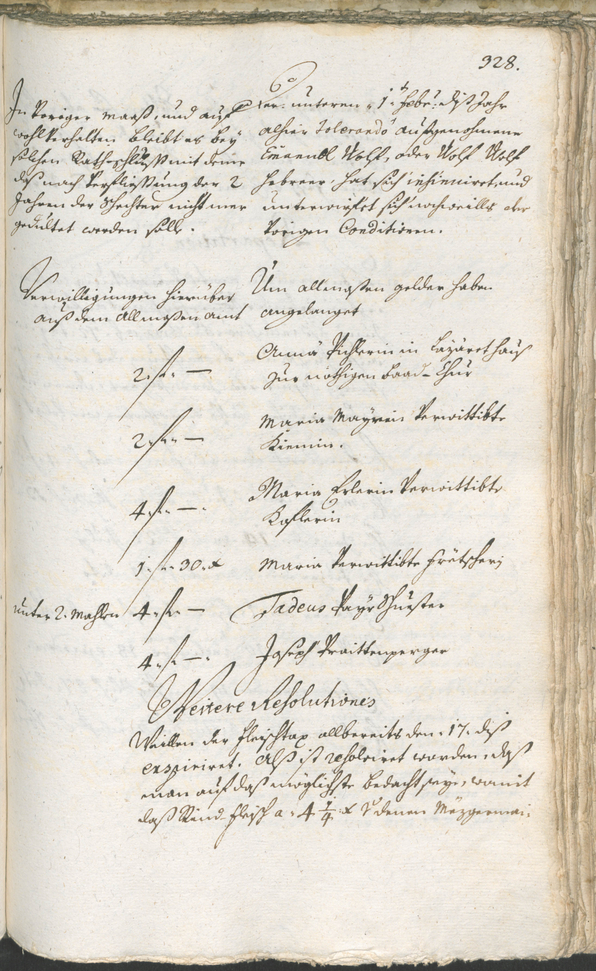 328.
In Voriger Maaß, und auf
wohl Verhalten bleibt es bey
solchen Rathschluß mit deme
daß nach Verfliessung der 2
Jahren der Schechter nicht mer
gedultet werden solle.
Der unterem 1t Febr: diß Jahr
alhier tolerando aufgenohmene
Emanuel Wolf, oder Wolf Wolf
Hebreer hat sich insinuiret, und
unterwürfft sich nochweills der
Vorigen Conditionen.
Verwilligungen hierüber
auß dem Allmosen Amt
Um allmosen gelder haben
angelanget
2 f. —
Anna Pichlerin in Lazaret hauß
zur nöthigen baad-Chur
2 f. —
Maria Mayrin Verwittibte
Kiemin.
4 f. —
Maria Erlerin Verwittibte
Koflerin
1 f. 30 x
Maria Verwittibte Frötscherj
unter 2. Mahlen 4 f. —
Tadeus Payr Schuester
4 f. —
Joseph Praittenperger
Weitere Resolutiones
Weillen der Fleischtax allbereits den 17. diß
exspiriret. Alß ist resolviret worden, daß
man auf daß möglichste bedacht seye, womit
daß Rind Fleisch a 4 1/4 x denen Mezgermai: